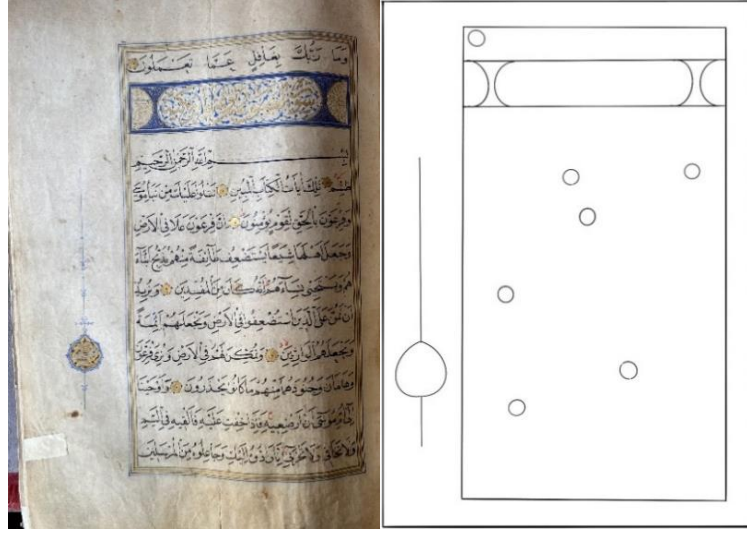 وما ربك بغافل عما تعملون
بسم الله الرحمن الرحيم
طسم تلك آيات الكتاب المبين نتلوا عليك من نبإ موسى
وفرعون بالحق لقوم يؤمنون إن فرعون علا في الأرض
وجعل أهلها شيعا يستضعف طائفة منهم يذبح أبناء
هم ويستحيي نساءهم إنه كان من المفسدين ونريد
أن نمن على الذين استضعفوا في الأرض ونجعلهم أئمة
ونجعلهم الوارثين ونمكن لهم في الأرض ونري فرعون
وهامان وجنودهما منهم ما كانوا يحذرون وأوحينا
إلى أم موسى أن أرضعيه فإذا خفت عليه فألقيه في اليم
ولا تخافي ولا تحزني إنا رادوه إليك وجاعلوه من المرسلين